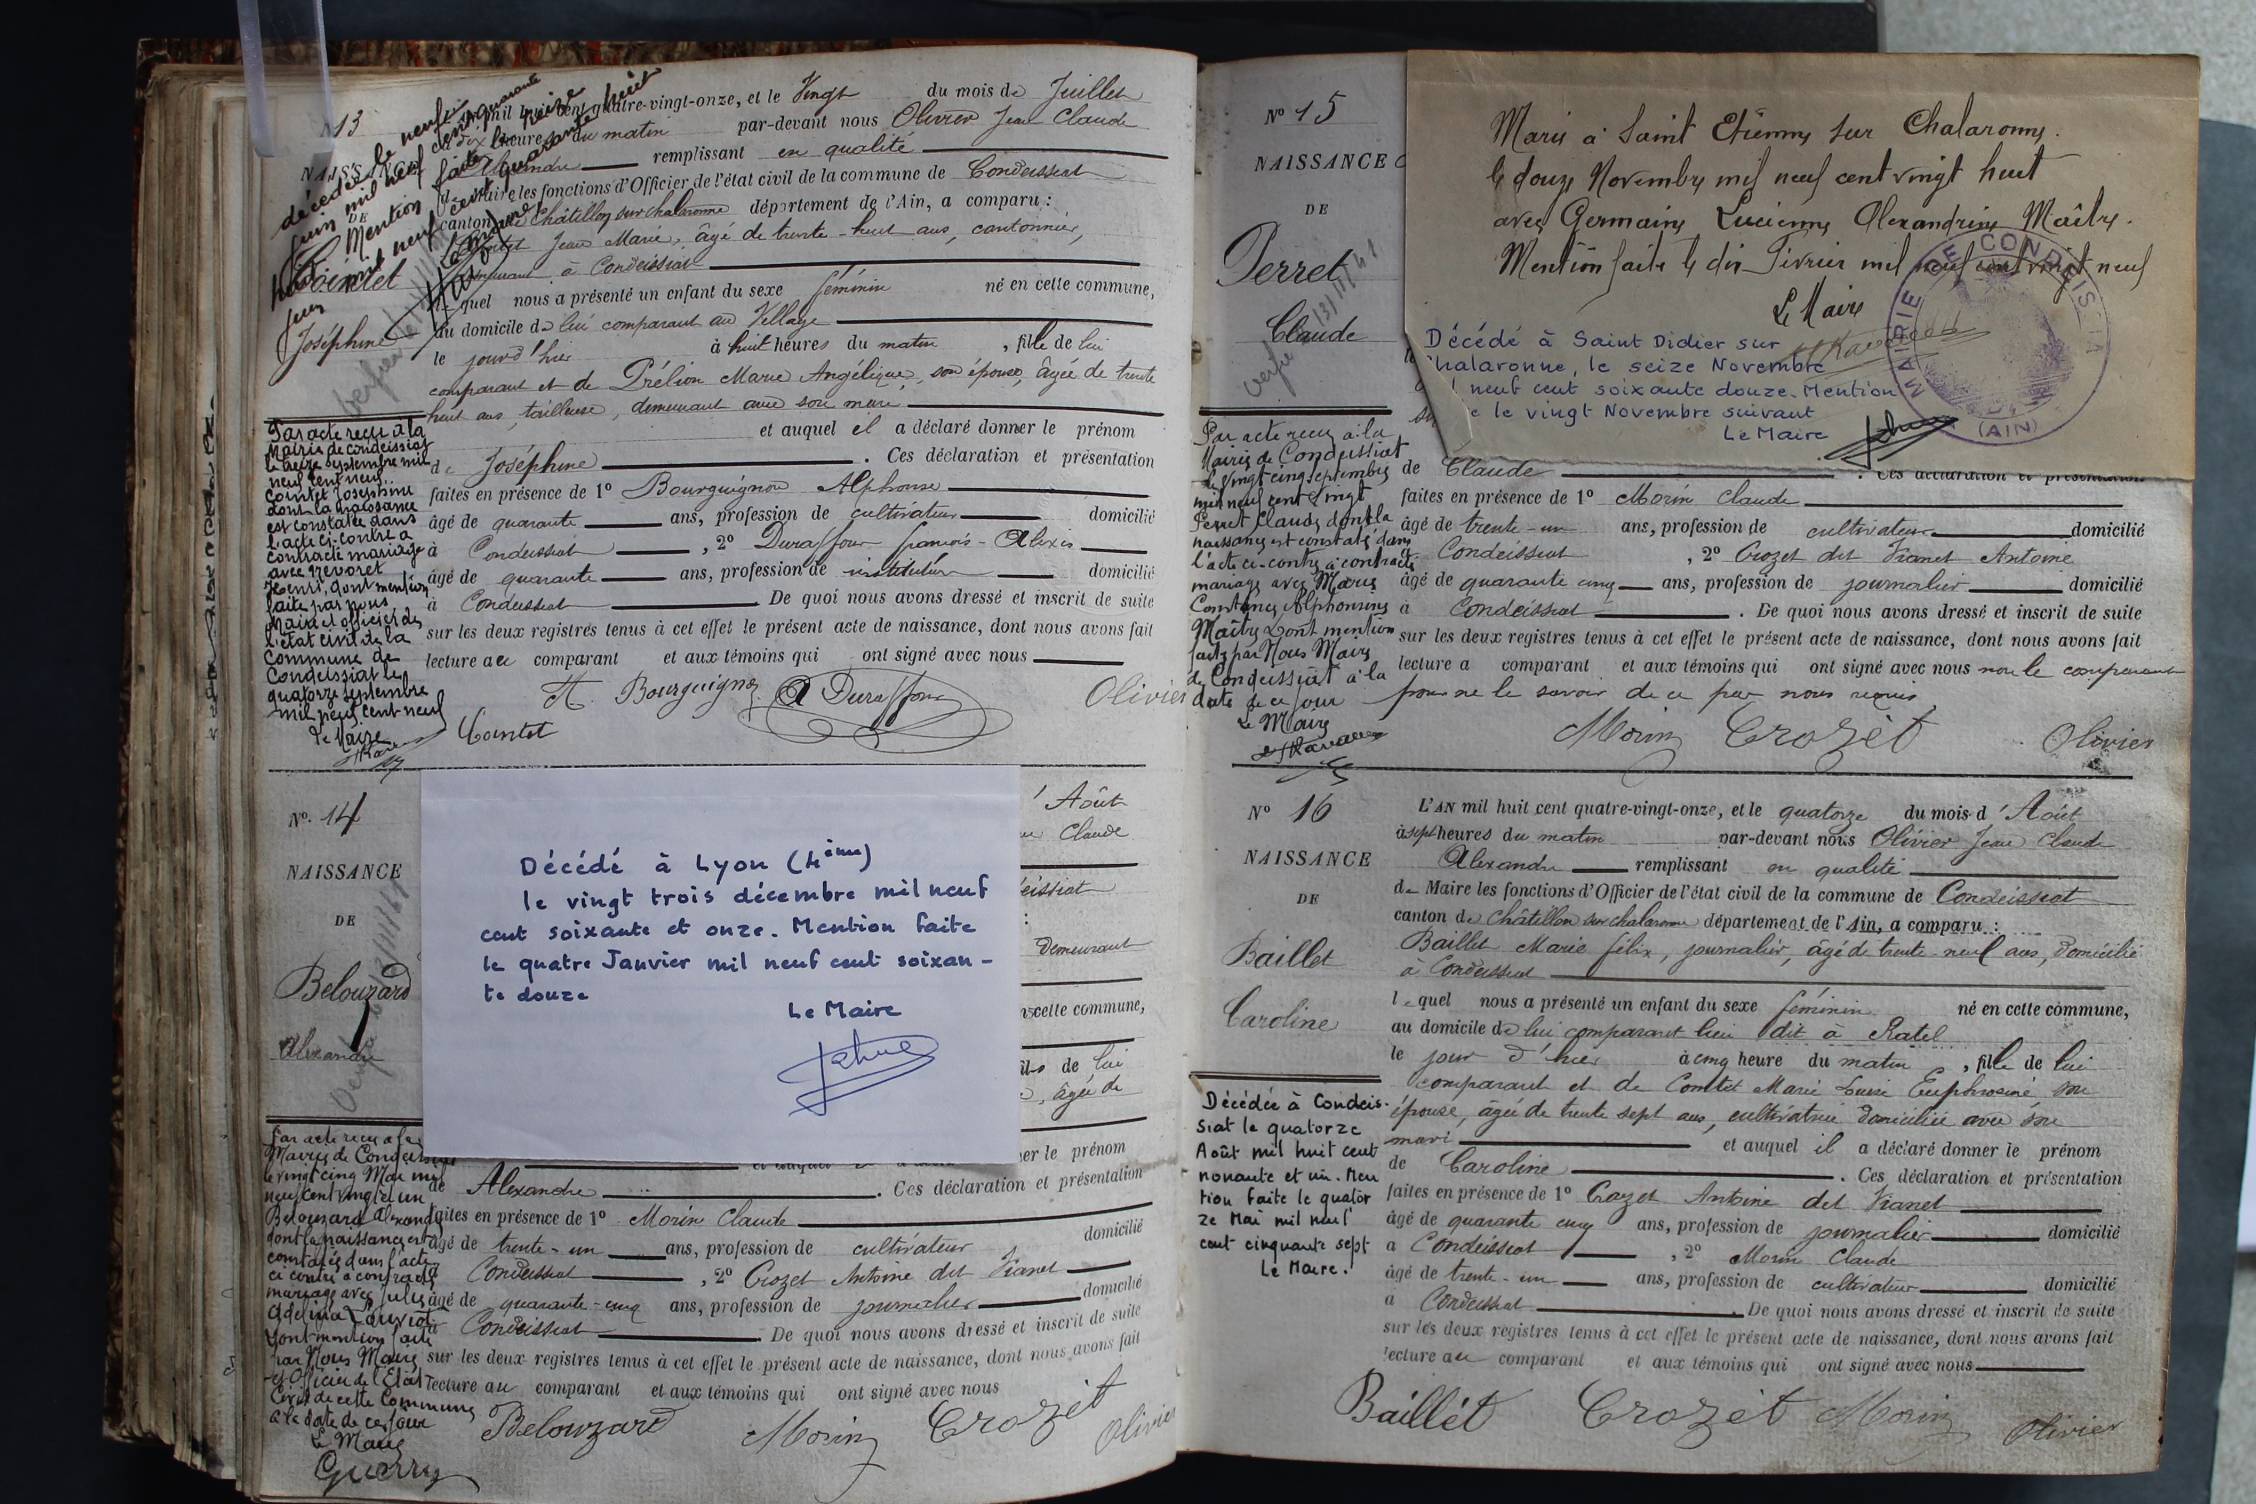 N° 13
NAISSANCE
DE
Cointet
Joséphine
mil huit cent quatre-vingt-onze, et le Vingt du mois de Juillet
à dix heures du matin par-devant nous Olivier Jean Claude
Alexandre remplissant en qualité
de Maire les fonctions d'Officier de l'état civil de la commune de Condeissiat
canton de Châtillon sur chalaronne département de l'Ain, a comparu :
Cointet Jean Marie, âgé de trente-huit ans, cantonnier,
demeurant à Condeissiat
lequel nous a présenté un enfant du sexe féminin né en cette commune,
au domicile de lui comparant au Village
le jourd'hier à huit heures du matin, fille de lui
comparant et de Prélion Marie Angélique, son épouse, âgée de trente
huit ans, tailleuse, demeurant avec son mari
et auquel il a déclaré donner le prénom
de Joséphine. Ces déclaration et présentation
faites en présence de 1° Bourguignon Alphonse
âgé de quarante ans, profession de cultivateur domicilié
à Condeissiat, 2° Duraffour françois-Alexis
âgé de quarante ans, profession de instituteur domicilié
à Condeissiat De quoi nous avons dressé et inscrit de suite
sur les deux registres tenus à cet effet le présent acte de naissance, dont nous avons fait
lecture au comparant et aux témoins qui ont signé avec nous
A. Bourguignon A Duraffour Olivier
Cointet
Par acte reçu à la
Mairie de Condeissiat
le treize septembre mil
neuf cent neuf
Cointet Joséphine
dont la naissance
est constatée dans
l'acte ci-contre a
contracté mariage
avec Nevoret
Henri, dont mention
faite par nous
Maire et officier de
l'état civil de la
Commune de
Condeissiat le
quatorze septembre
mil neuf cent neuf
Le Maire
N° 14
NAISSANCE
DE
Belouzard
Alexandre
' Août
Claude
eissiat
:
demeurant
cette commune,
fils de lui
, âgée de
er le prénom
Décédé à Lyon (4ème)
le vingt trois décembre mil neuf
cent soixante et onze. Mention faite
le quatre Janvier mil neuf cent soixan-
te douze
Le Maire
de Alexandre. Ces déclaration et présentation
faites en présence de 1° Morin Claude
âgé de trente-un ans, profession de cultivateur domicilié
Condeissiat, 2° Crozet Antoine dit Vianet
âgé de quarante-cinq ans, profession de journalier domicilié
à Condeissiat De quoi nous avons dressé et inscrit de suite
sur les deux registres tenus à cet effet le présent acte de naissance, dont nous avons fait
lecture au comparant et aux témoins qui ont signé avec nous
Belouzard Morin Crozet Olivier
Par acte reçu à la
Mairie de Condeissiat
le vingt cinq Mai mil
neuf cent vingt et un
Belouzard Alexandre
dont la naissance est
constatée dans l'acte
ci contre a contracté
mariage avec Jules
Adelina Lauriot
dont mention faite
par Nous Maire
et Officier de l'Etat
Civil de cette Commune
à la date de ce jour
Le Maire
Guerry
N° 15
NAISSANCE
DE
Perret
Claude
Marié à Saint Etienne sur Chalaronne.
le douze Novembre mil neuf cent vingt huit
avec Germaine Lucienne Alexandrine Maître.
Mention faite le dix Février mil neuf cent vingt neuf
Le Maire
MAIRIE DE CONDEISSIAT
(AIN)
Décédé à Saint Didier sur
Chalaronne, le seize Novembre
neuf cent soixante douze. Mention
e le vingt Novembre suivant
Le Maire
de Claude. Ces déclaration et présentation
faites en présence de 1° Morin Claude
âgé de trente-un ans, profession de cultivateur domicilié
à Condeissiat, 2° Crozet dit Vianet Antoine
âgé de quarante cinq ans, profession de journalier domicilié
à Condeissiat. De quoi nous avons dressé et inscrit de suite
sur les deux registres tenus à cet effet le présent acte de naissance, dont nous avons fait
lecture a comparant et aux témoins qui ont signé avec nous non le comparant
pour ne le savoir de ce par nous requis
Morin Crozet Olivier
Par acte reçu à la
Mairie de Condeissiat
le vingt cinq septembre
mil neuf cent vingt
Perret Claude dont la
naissance est constatée dans
l'acte ci-contre a contracté
mariage avec Marie
Constance Alphonsine
Maître dont mention
faite par Nous Maire
de Condeissiat à la
date de ce jour
Le Maire
N° 16
NAISSANCE
DE
Baillet
Caroline
L'AN mil huit cent quatre-vingt-onze, et le quatorze du mois d'Août
à sept heures du matin par-devant nous Olivier Jean Claude
Alexandre remplissant en qualité
de Maire les fonctions d'Officier de l'état civil de la commune de Condeissiat
canton de Châtillon sur chalaronne département de l'Ain, a comparu :
Baillet Marie félix, journalier, âgé de trente-neuf ans, domicilié
à Condeissiat
lequel nous a présenté un enfant du sexe féminin né en cette commune,
au domicile de lui comparant lieu dit à Ratel
le jour d'hier à cinq heure du matin, fille de lui
comparant et de Comtet Marie Louise Euphrosine son
épouse, âgée de trente sept ans, cultivatrice domiciliée avec son
mari et auquel il a déclaré donner le prénom
de Caroline. Ces déclaration et présentation
faites en présence de 1° Crozet Antoine dit Vianet
âgé de quarante cinq ans, profession de journalier domicilié
à Condeissiat, 2° Morin Claude
âgé de trente-un ans, profession de cultivateur domicilié
à Condeissiat. De quoi nous avons dressé et inscrit de suite
sur les deux registres tenus à cet effet le présent acte de naissance, dont nous avons fait
lecture au comparant et aux témoins qui ont signé avec nous
Baillét Crozet Morin Olivier
Décédée à Condeis-
siat le quatorze
Août mil huit cent
nonante et un. Men
tion faite le quator
ze Mai mil neuf
cent cinquante sept
Le Maire.